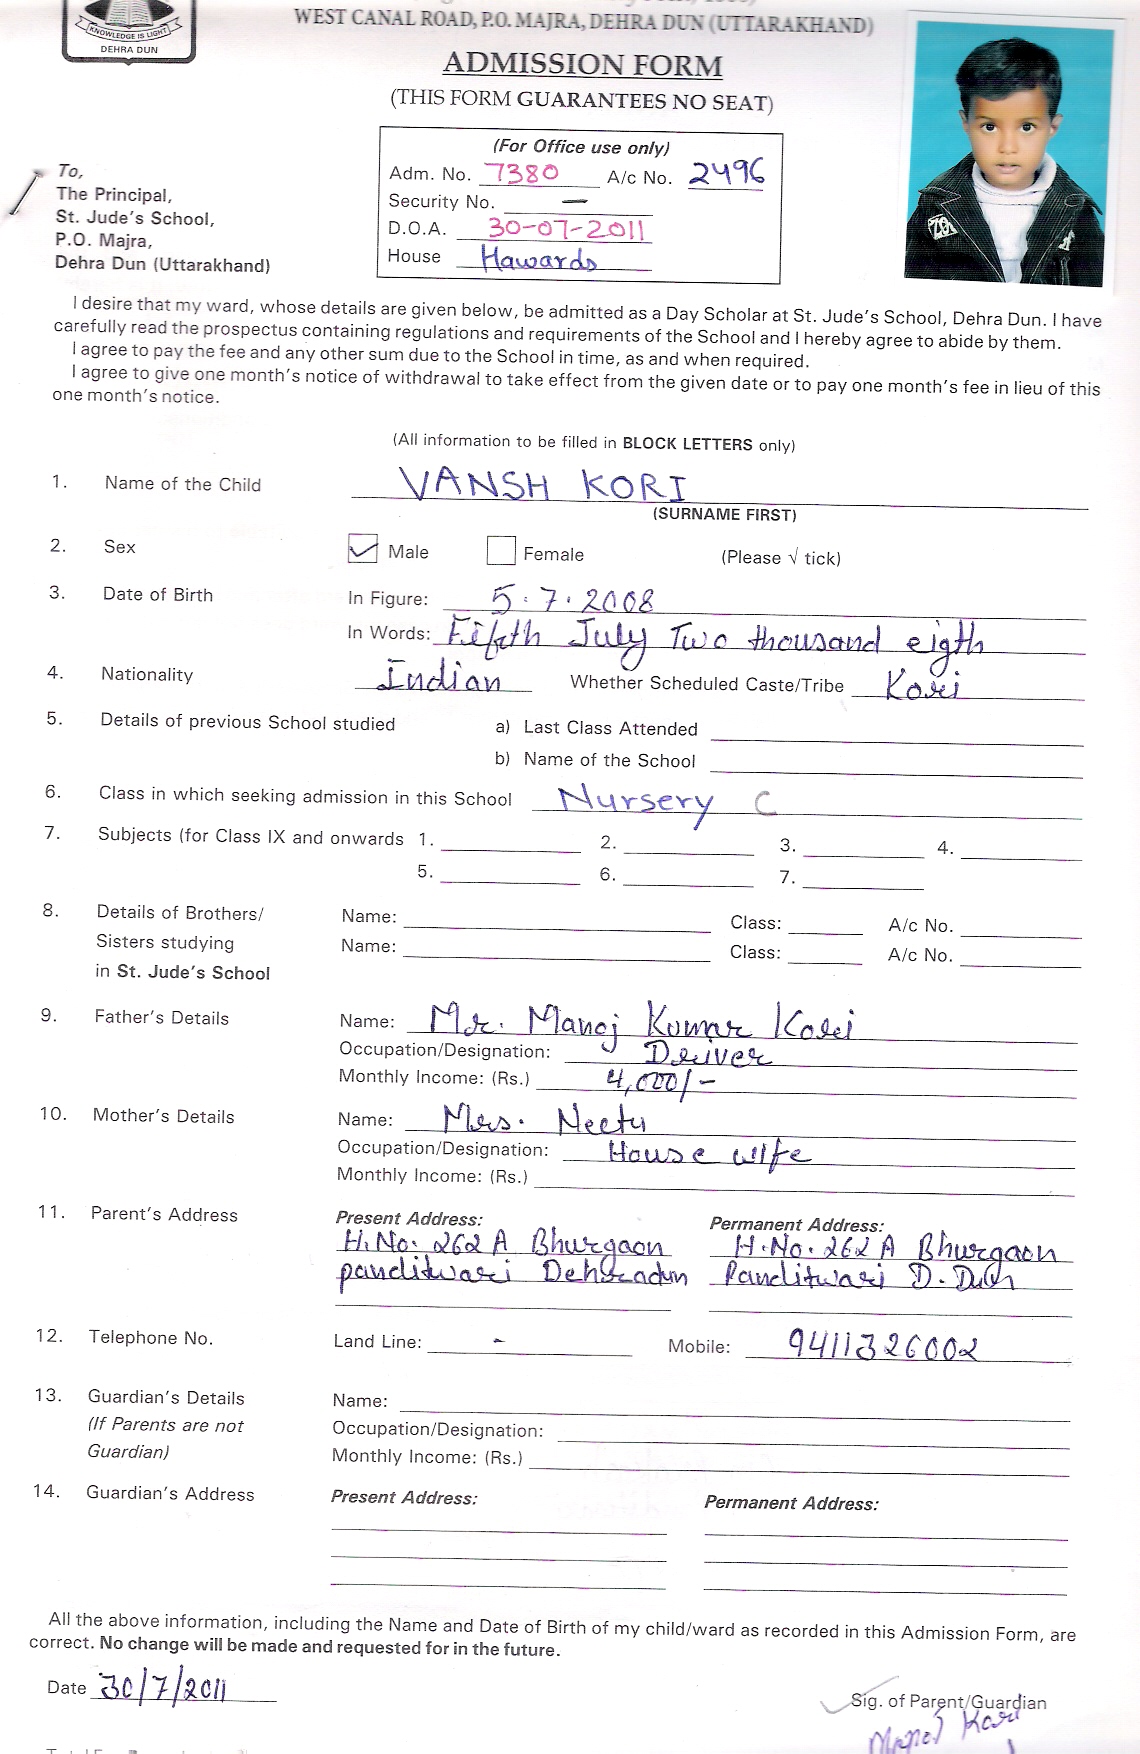 KNOWLEDGE IS LIGHT
DEHRA DUN
WEST CANAL ROAD, P.O. MAJRA, DEHRA DUN (UTTARAKHAND)
ADMISSION FORM
(THIS FORM GUARANTEES NO SEAT)
(For Office use only)
Adm. No. 7380 A/c No. 2496
Security No. —
D.O.A. 30-07-2011
House Hawards
To,
The Principal,
St. Jude's School,
P.O. Majra,
Dehra Dun (Uttarakhand)
I desire that my ward, whose details are given below, be admitted as a Day Scholar at St. Jude's School, Dehra Dun. I have
carefully read the prospectus containing regulations and requirements of the School and I hereby agree to abide by them.
I agree to pay the fee and any other sum due to the School in time, as and when required.
I agree to give one month's notice of withdrawal to take effect from the given date or to pay one month's fee in lieu of this
one month's notice.
(All information to be filled in BLOCK LETTERS only)
1. Name of the Child VANSH KORI
(SURNAME FIRST)
2. Sex ✓ Male Female (Please √ tick)
3. Date of Birth In Figure: 5.7.2008
In Words: Fifth July Two thousand eigth
4. Nationality Indian Whether Scheduled Caste/Tribe Kori
5. Details of previous School studied a) Last Class Attended
b) Name of the School
6. Class in which seeking admission in this School Nursery C
7. Subjects (for Class IX and onwards 1. 2. 3. 4.
5. 6. 7.
8. Details of Brothers/ Name: Class: A/c No.
Sisters studying Name: Class: A/c No.
in St. Jude's School
9. Father's Details Name: Mr. Manoj Kumar Kori
Occupation/Designation: Driver
Monthly Income: (Rs.) 4,000/-
10. Mother's Details Name: Mrs. Neetu
Occupation/Designation: House wife
Monthly Income: (Rs.)
11. Parent's Address Present Address: Permanent Address:
H.No. 262 A Bhurgaon H.No. 262 A Bhurgaon
panditwari Dehradun Panditwari D. Dun
12. Telephone No. Land Line: - Mobile: 9411326002
13. Guardian's Details Name:
(If Parents are not Occupation/Designation:
Guardian) Monthly Income: (Rs.)
14. Guardian's Address Present Address: Permanent Address:
All the above information, including the Name and Date of Birth of my child/ward as recorded in this Admission Form, are
correct. No change will be made and requested for in the future.
Date 30/7/2011
Sig. of Parent/Guardian
Manoj Kori